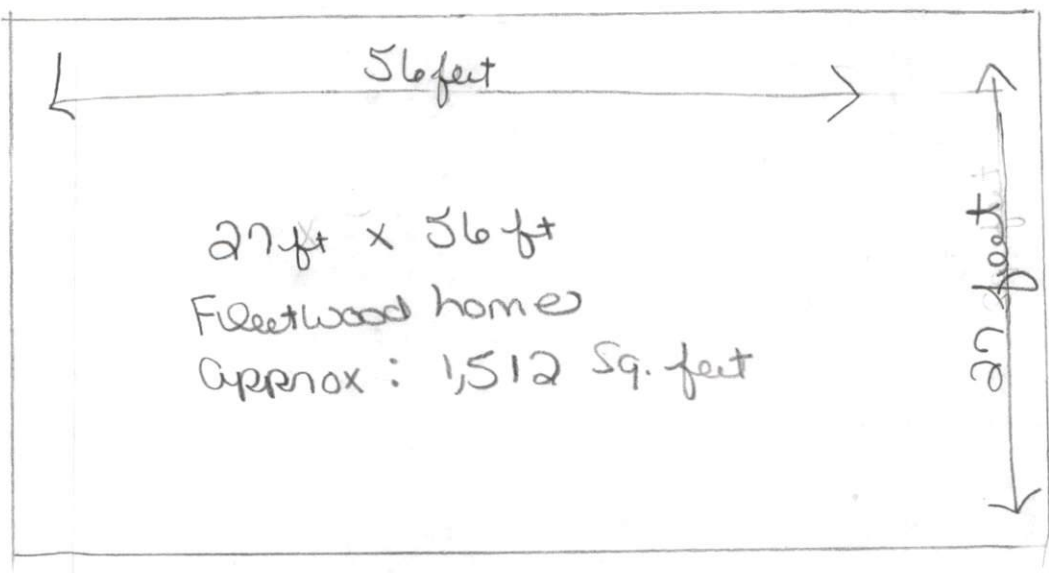 56 feet
27 ft x 56 ft
Fleetwood home
approx: 1,512 Sq. feet
27 feet